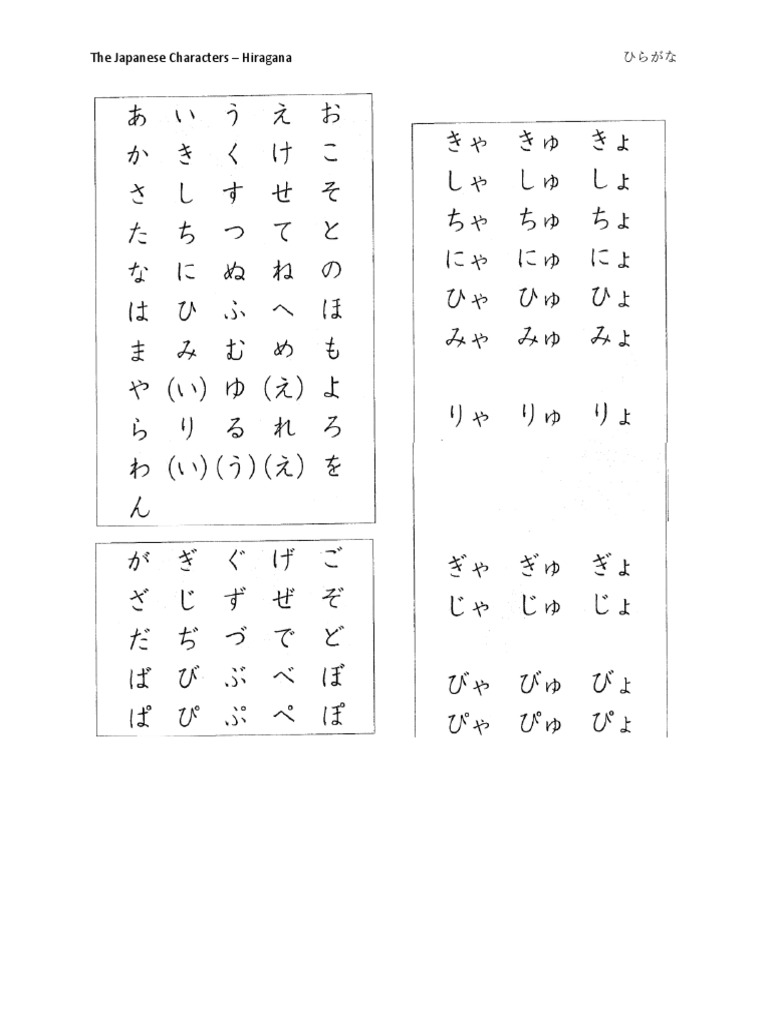 The Japanese Characters – Hiragana ひらがな
あ い う え お
か き く け こ
さ し す せ そ
た ち つ て と
な に ぬ ね の
は ひ ふ へ ほ
ま み む め も
や (い) ゆ (え) よ
ら り る れ ろ
わ (い) (う) (え) を
ん
が ぎ ぐ げ ご
ざ じ ず ぜ ぞ
だ ぢ づ で ど
ば び ぶ べ ぼ
ぱ ぴ ぷ ぺ ぽ
きゃ きゅ きょ
しゃ しゅ しょ
ちゃ ちゅ ちょ
にゃ にゅ にょ
ひゃ ひゅ ひょ
みゃ みゅ みょ
りゃ りゅ りょ
ぎゃ ぎゅ ぎょ
じゃ じゅ じょ
びゃ びゅ びょ
ぴゃ ぴゅ ぴょ